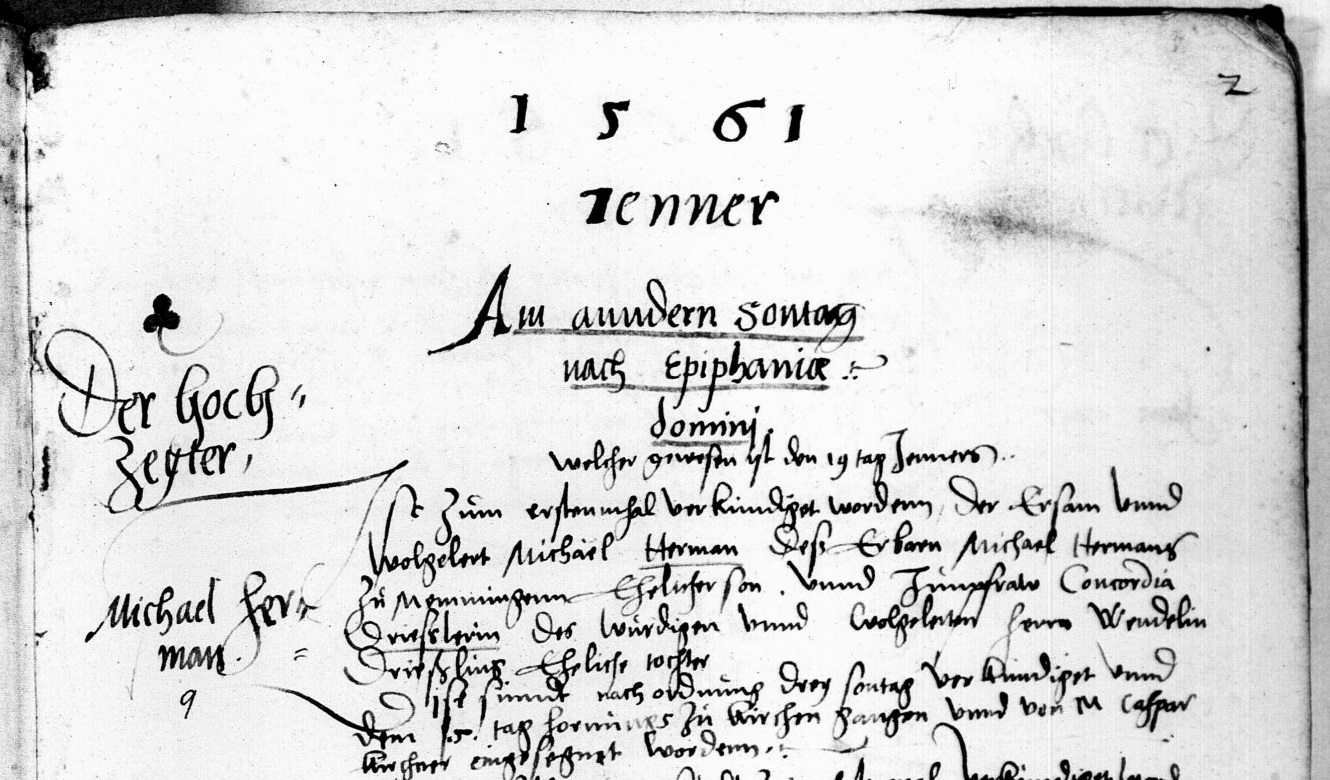 2
1 5 6 1
Jenner
Am anndern Sontag
nach Epiphaniæ
domini.
welcher gewesen ist den 19 tag Jenners
Der Hoch=
Zeyter,
Ist Zum erstenmhal verkundiget wordenn, Der Ersam vnnd
wolgelert Michael Herman Deß Erbarn Michael Hermans
Zu Memmingenn Ehelicher son. vnnd Junnpfraw Concordia
Michael Her=
man.
9
Driesslerin Des würdigen vnnd Wolgelerten herrn Wendelin
Drießlins Eheliche tochter
Ist nach ordnung drey sontag verkundiget vnnd
dem 15. tag hornungs Zu kirchen gangen vnnd von M Caspar
kirchner eingesegnet wordenn.